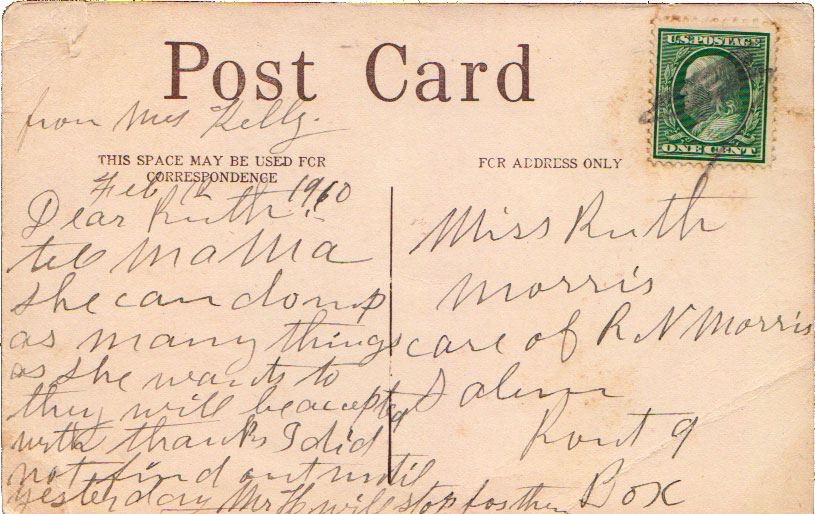 Post Card
U.S. POSTAGE
ONE CENT
from Mrs Kelly.
THIS SPACE MAY BE USED FOR
CORRESPONDENCE
FOR ADDRESS ONLY
Feb 12 1910
Dear Ruth!
tell MaMa
she can do up
as many things
as she wants to
they will be accepted
with thanks I did
not find out until
yesterday Mr H will stop for them
Miss Ruth
Morris
care of R N Morris
Salem
Rout 9
Box